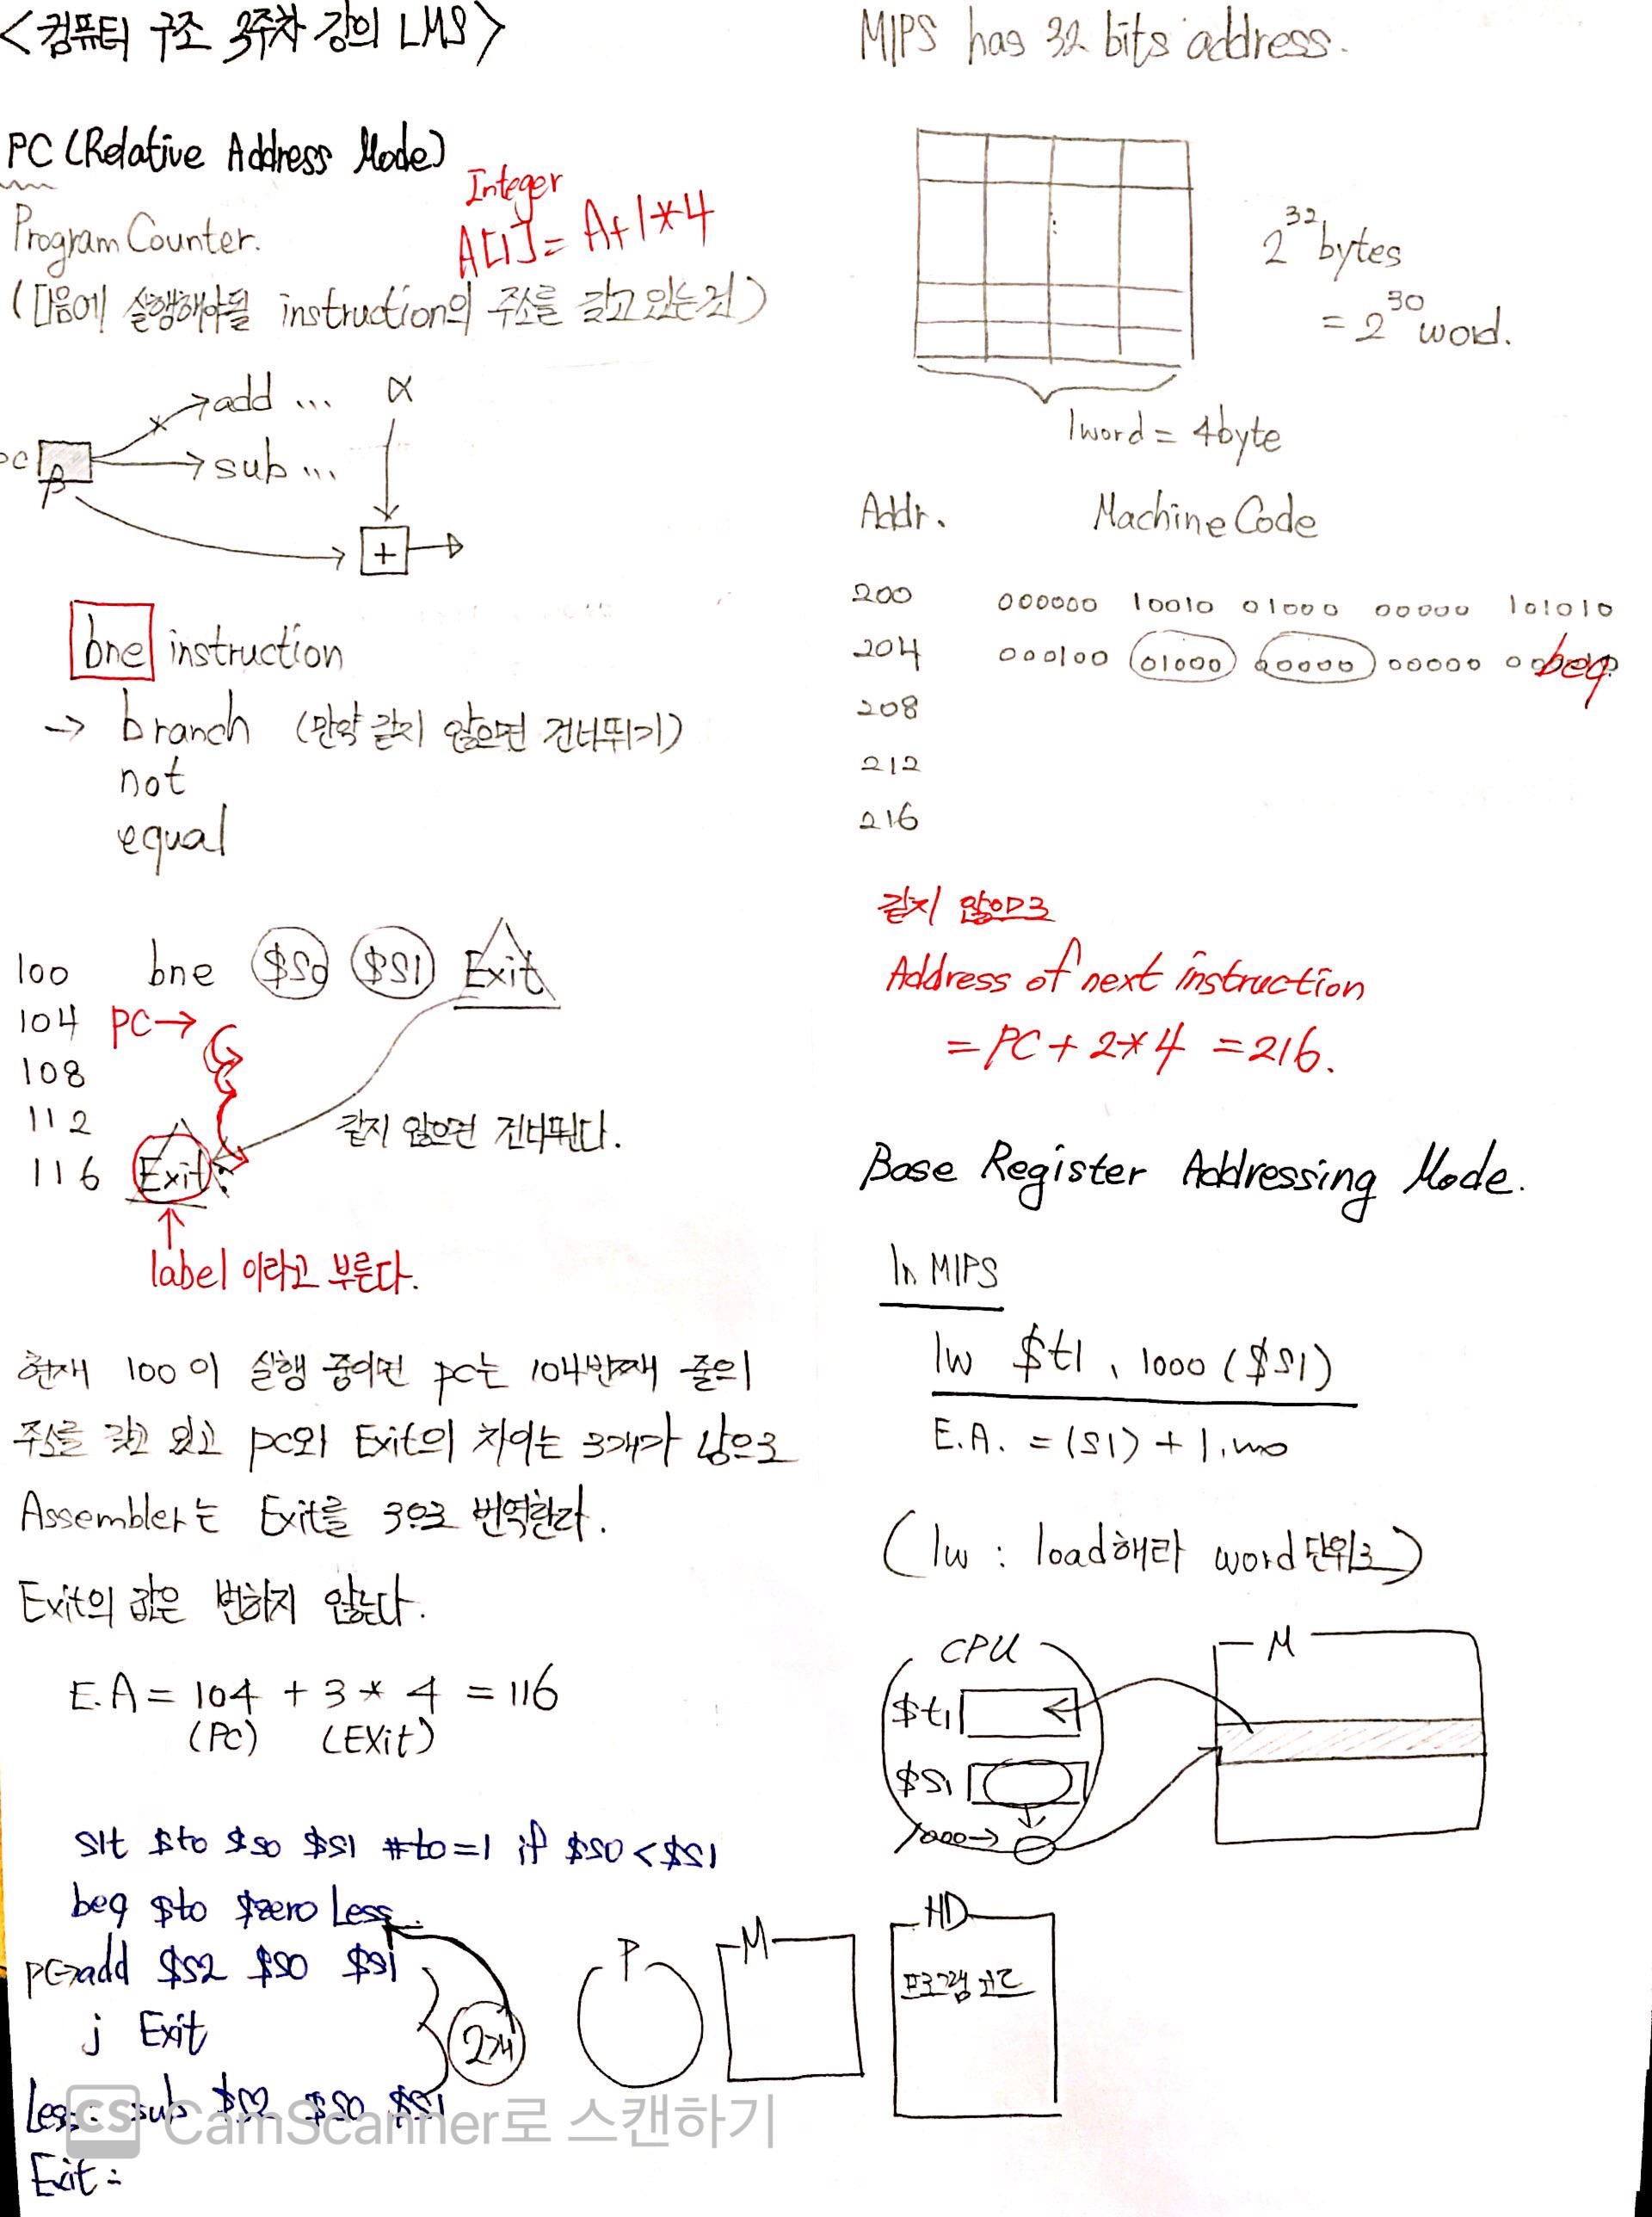 <컴퓨터 구조 3주차 강의 LMS>
PC (Relative Address Mode)
Program Counter.
Integer
A[1] = A+1*4
(다음에 실행해야될 instruction의 주소를 갖고 있는 것)
add ...
α
PC
β
sub ...
+
bne instruction
→ branch (만약 같지 않으면 건너뛰기)
not
equal
100 bne $S0 $S1 Exit
104 PC→
108
112
같지 않으면 건너뛴다.
116 Exit:
label 이라고 부른다.
현재 100이 실행 중이면 pc는 104번째 줄의
주소를 갖고 있고 pc와 Exit의 차이는 3개가 남으로
Assembler는 Exit를 3으로 번역한다.
Exit의 값은 변하지 않는다.
E.A = 104 + 3 * 4 = 116
(PC) (EXit)
slt $t0 $s0 $s1 #t0=1 if $s0<$s1
beq $t0 $zero Less
PC→add $S2 $S0 $S1
j Exit
2개
Less: sub $S2 $S0 $S1
Exit:
MIPS has 32 bits address.
2^32 bytes
= 2^30 word.
1word = 4byte
Addr. Machine Code
200 000000 10010 01000 00000 101010
204 000100 01000 00000 00000 beq
208
212
216
같지 않으므로
Address of next instruction
= PC + 2*4 = 216.
Base Register Addressing Mode.
In MIPS
lw $t1, 1000 ($S1)
E.A. = (S1) + 1,000
(lw : load해라 word단위로)
CPU
M
$t1
$S1
1000→
P
M
HD
프로그램 코드
CS CamScanner로 스캔하기